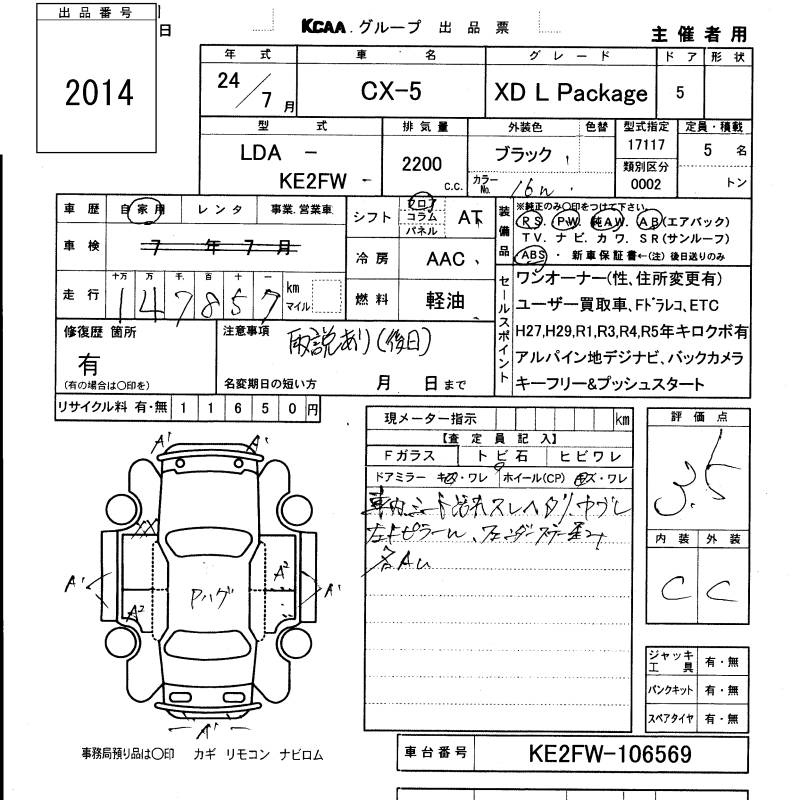 出品番号
日
2014
KCAA グループ 出品票
主催者用
年式 車名 グレード ドア 形状
24/7月 CX-5 XD L Package 5
型式 排気量 外装色 色替 型式指定 定員・積載
LDA - 2200 c.c. ブラック 17117 5 名
KE2FW - カラーNo. 16W 類別区分 0002 トン
車歴 自家用 レンタ 事業.営業車
車検 7年7月
走行 十万 万 千 百 十 一
147857 km マイル
シフト フロア コラム パネル AT
冷房 AAC
燃料 軽油
装備品 ※純正のみ〇印をつけて下さい。
RS. PW. 純AW. AB(エアバック)
TV. ナビ. カワ. SR(サンルーフ)
ABS・新車保証書←(注)後日送りのみ
セールスポイント
ワンオーナー(性、住所変更有)
ユーザー買取車、Fドラレコ、ETC
H27,H29,R1,R3,R4,R5年キロクボ有
アルパイン地デジナビ、バックカメラ
キーフリー&プッシュスタート
修復歴 箇所
有
(有の場合は〇印を)
注意事項
取説あり(後日)
名変期日の短い方 月 日まで
リサイクル料 有・無 11650円
現メーター指示 km
【査定員記入】
Fガラス トビ石 ヒビワレ
ドアミラー キズ・ワレ ホイール(CP) キズ・ワレ
車内シート汚れスレヘタリ
各AU
評価点
3.5
内装 外装
C C
A' A'
XX
A' A² A'
A²
Pハゲ
A'
ジャッキ工具 有・無
パンクキット 有・無
スペアタイヤ 有・無
事務局預り品は〇印 カギ リモコン ナビロム
車台番号 KE2FW-106569